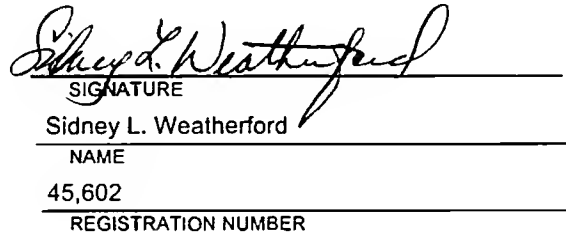 Sidney L. Weatherford
SIGNATURE
Sidney L. Weatherford
NAME
45,602
REGISTRATION NUMBER